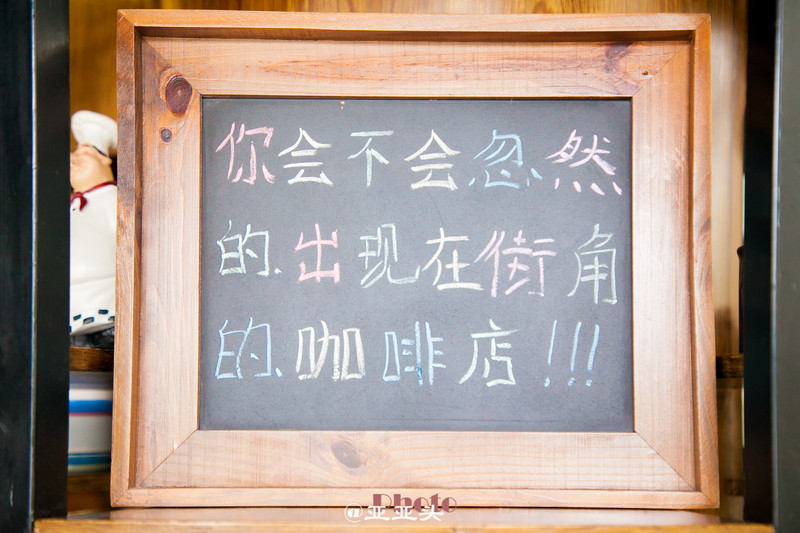 你会不会忽然
的出现在街角
的咖啡店!!!
Photo
@亚亚头